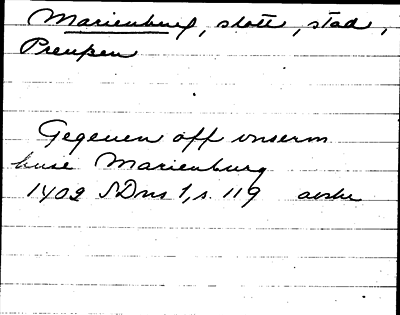 Marienburg, slott, stad,
Preuſsen
Gegeuen off vnserm
huse Marienburg
1402 SDns 1, s. 119 avskr